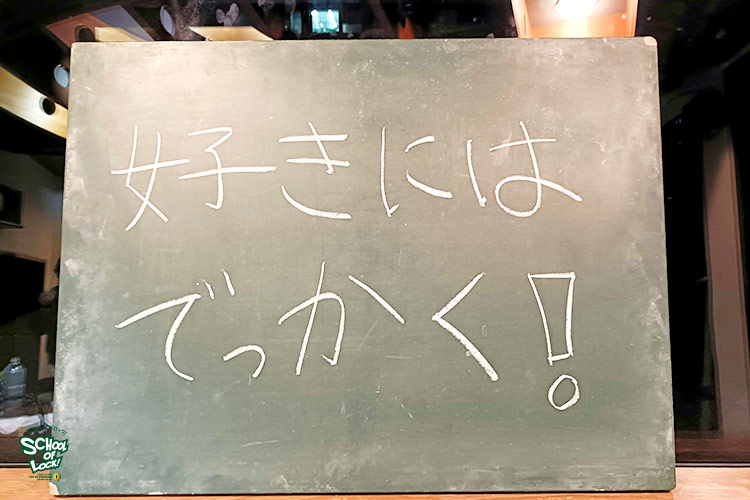 好きには
でっかく!
SCHOOL
OF
LOCK!